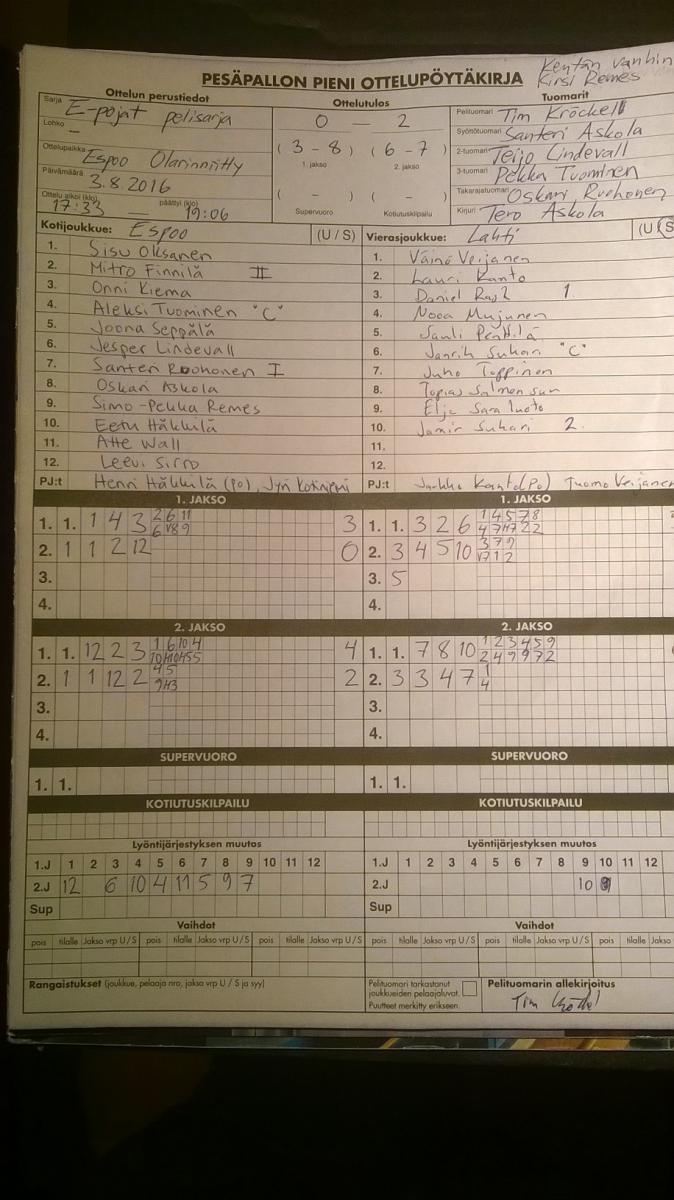 Kentän vanhin
Kirsi Remes
PESÄPALLON PIENI OTTELUPÖYTÄKIRJA
Ottelun perustiedot
Sarja E-pojat pelisarja
Lohko –
Ottelupaikka Espoo Olarinniitty
Päivämäärä 3.8.2016
Ottelu alkoi (klo) 17:33 — päättyi (klo) 19:06
Ottelutulos
0 — 2
( 3 - 8 ) ( 6 - 7 )
1. jakso 2. jakso
( - ) ( - )
Supervuoro Kotiutuskilpailu
Tuomarit
Pelituomari Tim Kröckell
Syöttötuomari Santeri Askola
2-tuomari Teijo Lindevall
3-tuomari Pekka Tuominen
Takarajatuomari Oskari Ruohonen
Kirjuri Tero Askola
Kotijoukkue: Espoo (U / S)
1. Sisu Oksanen
2. Mitro Finnilä II
3. Onni Kiema
4. Aleksi Tuominen "C"
5. Joona Seppälä
6. Jesper Lindevall
7. Santeri Ruohonen I
8. Oskari Askola
9. Simo-Pekka Remes
10. Eetu Häkkilä
11. Atte Wall
12. Leevi Sirro
PJ:t Henri Häkkilä (PJ), Jyri
Vierasjoukkue: Lahti (U/S
1. Väinö Veijanen
2. Lauri Kanto
3. Daniel 1.
4. Nooa Mujunen
5. Sauli Penttilä
6. Suhari "C"
7. Juho Toppinen
8. Topias
9.
10. Suhari 2.
11.
12.
PJ:t Jarkko Kanto (PJ) Tuomo Veijanen
1. JAKSO
1. 1. 1 4 3 2 6 11 3
2. 1 1 2 12 0
3.
4.
1. JAKSO
1. 1. 3 2 6 1 4 5 7 8
2. 3 4 5 10 3 7 9
3. 5
4.
2. JAKSO
1. 1. 12 2 3 1 6 10 4 4
2. 1 1 12 2 4 5 2
3.
4.
2. JAKSO
1. 1. 7 8 10 1 2 3 4 5 9
2 4 9 9 7 2
2. 3 3 4 7 1
4
3.
4.
SUPERVUORO
1. 1.
SUPERVUORO
1. 1.
KOTIUTUSKILPAILU
KOTIUTUSKILPAILU
Lyöntijärjestyksen muutos
1.J 1 2 3 4 5 6 7 8 9 10 11 12
2.J 12 6 10 4 11 5 9 7
Sup
Lyöntijärjestyksen muutos
1.J 1 2 3 4 5 6 7 8 9 10 11 12
2.J 10 9
Sup
Vaihdot
pois tilalle Jakso vrp U / S pois tilalle Jakso vrp U / S pois tilalle Jakso vrp U / S
Vaihdot
pois tilalle Jakso vrp U / S pois tilalle Jakso vrp U / S pois tilalle Jakso
Rangaistukset (joukkue, pelaaja nro, jakso vrp U / S ja syy)
Pelituomari tarkastanut
joukkueiden pelaajaluvat.
Puutteet merkitty erikseen.
Pelituomarin allekirjoitus
Tim